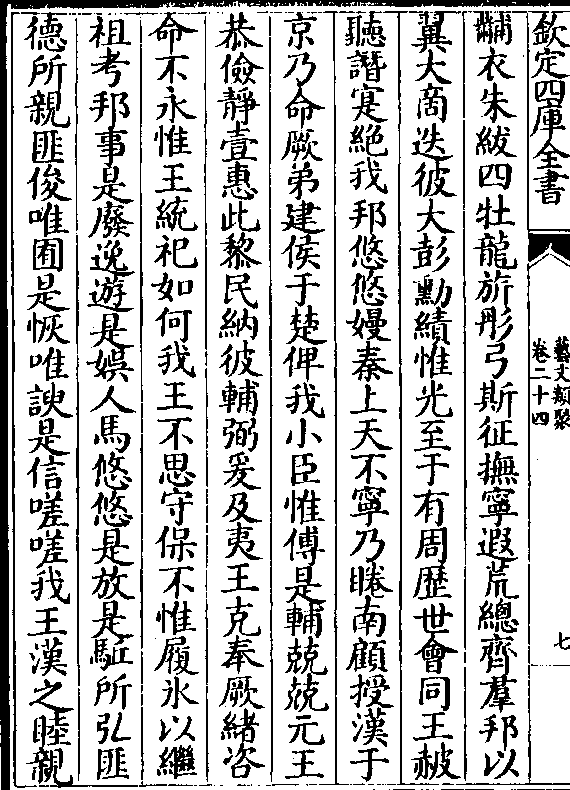 欽定四庫全書
藝文類聚
卷二十四
七
黼衣朱紱四牡龍旂彤弓斯征撫寧遐荒總齊羣邦以
翼大商迭彼大彭勳績惟光至于有周歴世會同王赧
聽譖寔絶我邦悠悠嫚秦上天不寧乃睠南顧授漢于
京乃命厥弟建侯于楚俾我小臣惟傅是輔兢兢元王
恭儉靜壹惠此黎民納彼輔弼爰及夷王克奉厥緒咨
命不永惟王統祀如何我王不思守保不惟履氷以繼
祖考邦事是廢逸遊是娛人馬悠悠是放是駈所弘匪
德所親匪俊唯囿是恢唯諛是信嗟嗟我王漢之睦親